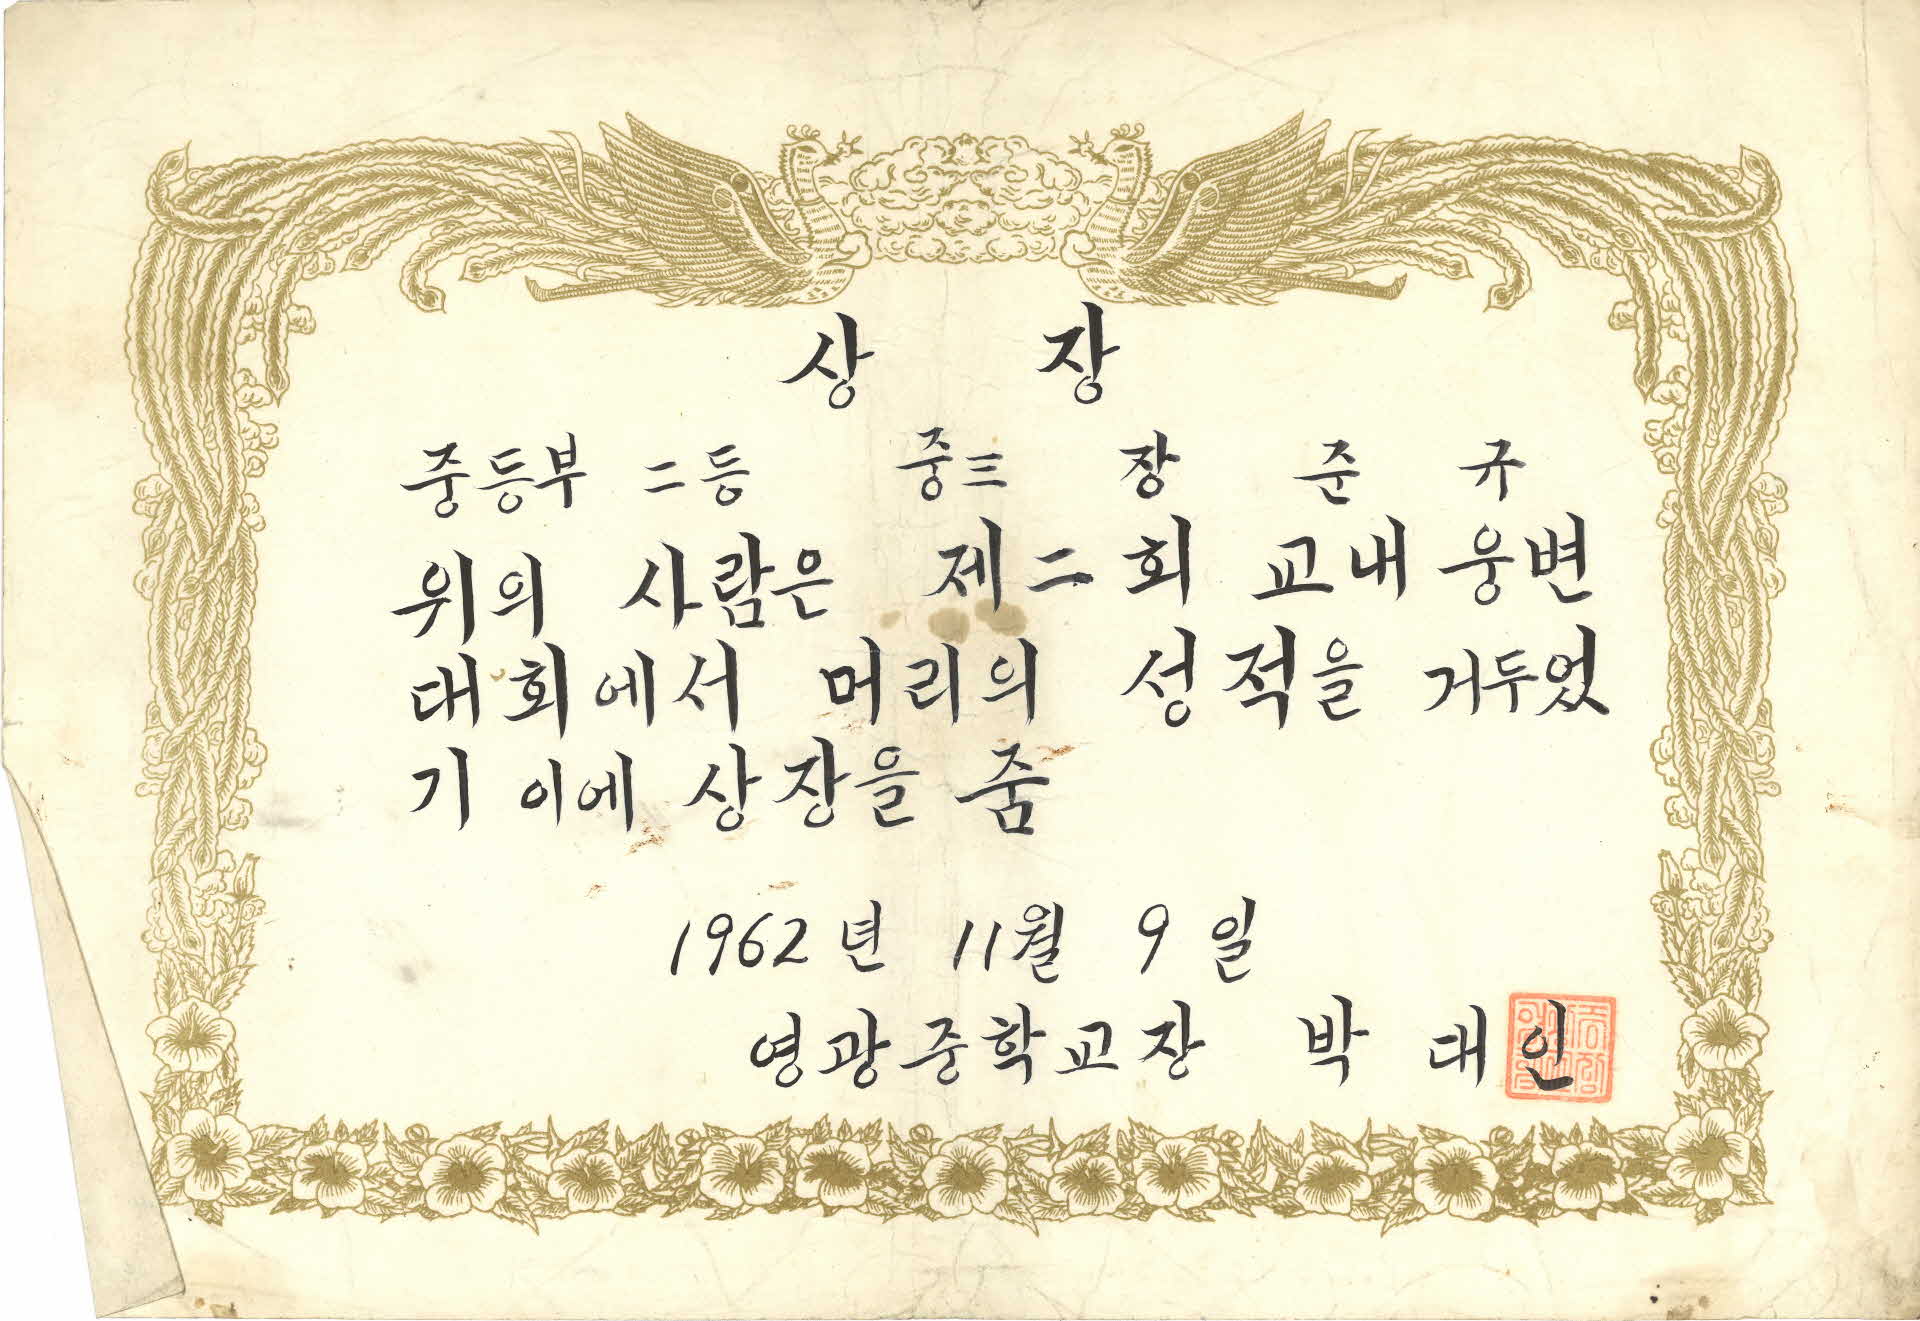 상 장
중등부 二등 중三 장 준 규
위의 사람은 제二회 교내 웅변
대회에서 머리의 성적을 거두었
기 이에 상장을 줌
1962년 11월 9일
영광중학교장 박 대 인